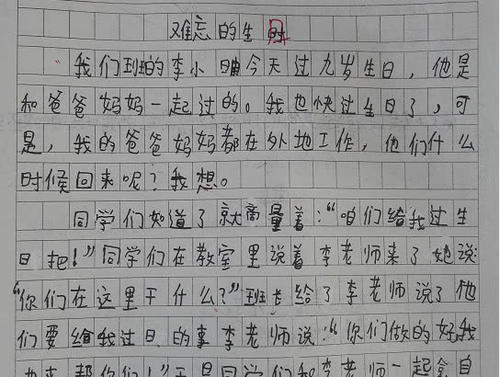 难忘的生日
我们班的李小明今天过九岁生日，他是
和爸爸妈妈一起过的。我也快过生日了，可
是，我的爸爸妈妈都在外地工作，他们什么
时候回来呢？我想。
同学们知道了就商量着：“咱们给我过生
日把！”同学们在教室里说着李老师来了她说：
“你们在这里干什么？”班长给了李老师说了他
们要给我过日的事李老师说：“你们做的好我
也来帮你们！”于是同学们和李老师一起拿自